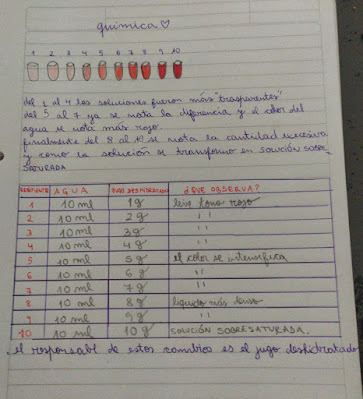 química ♡
1 2 3 4 5 6 7 8 9 10
del 1 al 4 las soluciones fueron más "trasparentes"
del 5 al 7 ya se nota la diferencia y el color del
agua se nota más rojo
finalmente del 8 al 10 se nota la cantidad excesiva
y como la solución se transformo en SOLUCIÓN SOBRE
SATURADA
RECIPIENTE AGUA JUGO DESHIDRATADO ¿QUE OBSERVA?
1 10 ml 1g leve tono rojo
2 10 ml 2g ''
3 10 ml 3g ''
4 10 ml 4g ''
5 10 ml 5g el color se intensifica
6 10 ml 6g ''
7 10 ml 7g ''
8 10 ml 8g liquido más denso
9 10 ml 9g ''
10 10 ml 10g SOLUCIÓN SOBRESATURADA.
el responsable de estos cambios es el jugo deshidratado